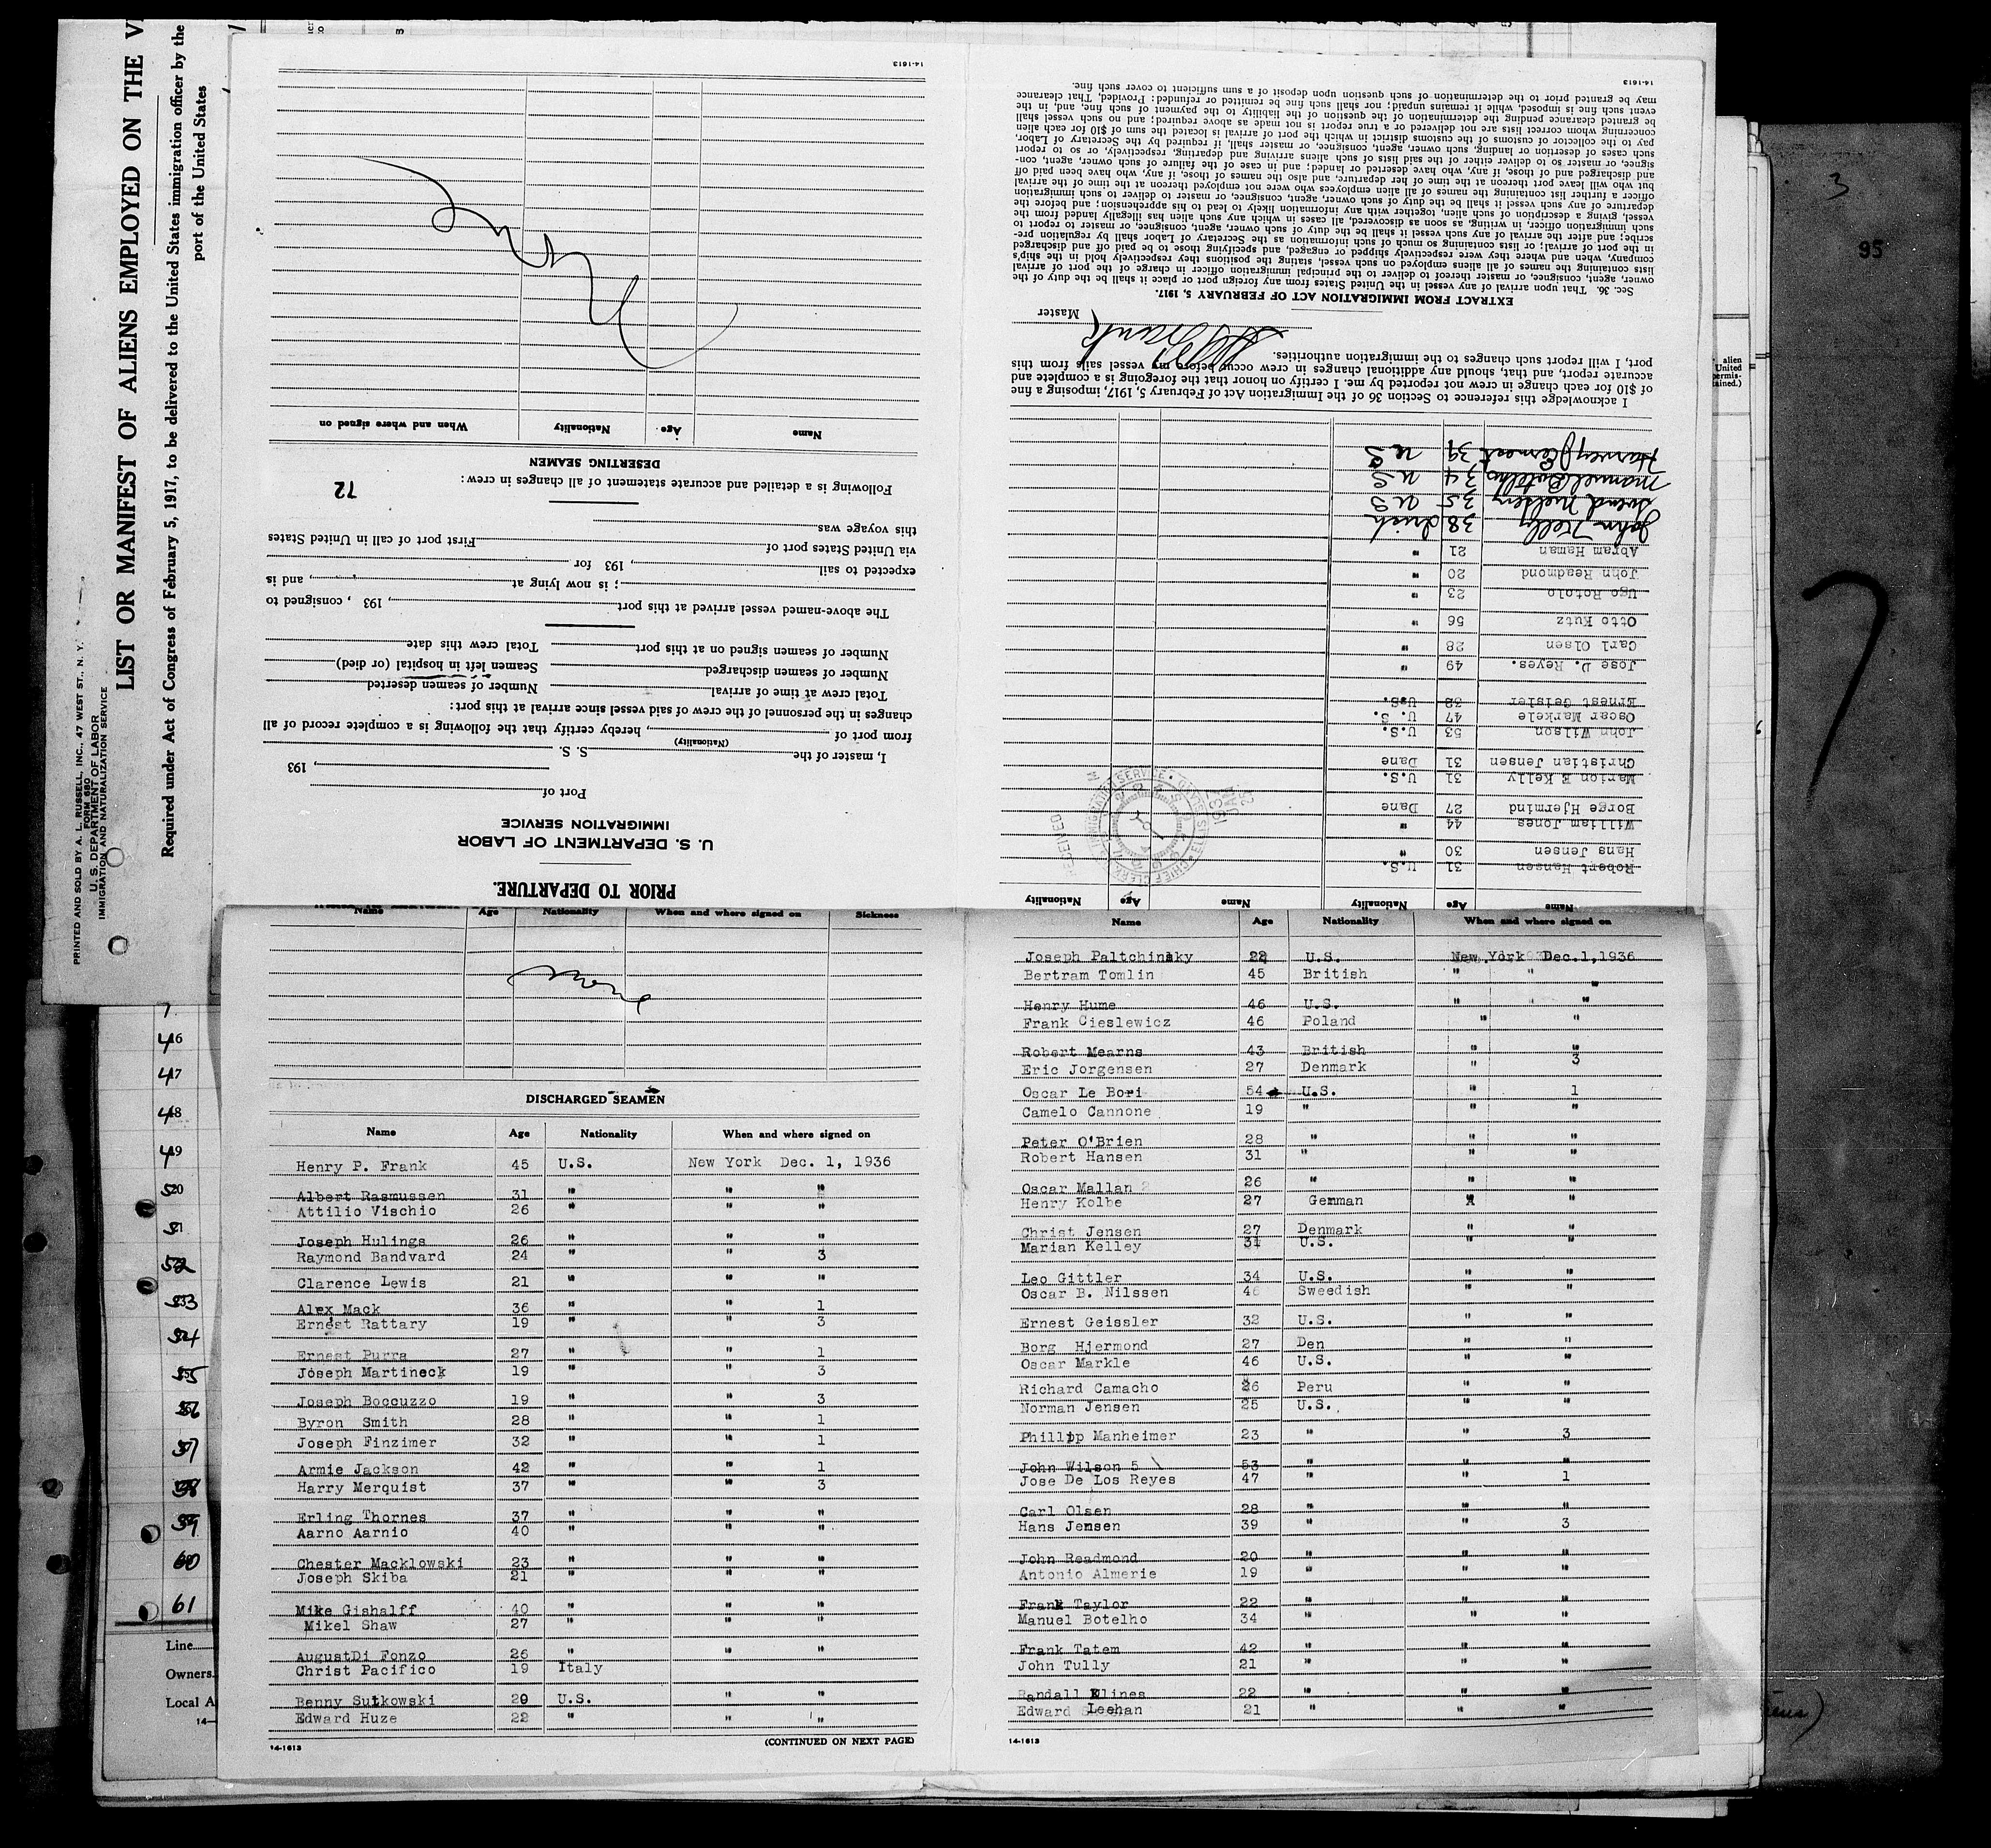 PRINTED AND SOLD BY A. L. RUSSELL, INC., 47 WEST ST., N. Y.
FORM 680
U. S. DEPARTMENT OF LABOR
IMMIGRATION AND NATURALIZATION SERVICE
LIST OR MANIFEST OF ALIENS EMPLOYED ON THE V
Required under Act of Congress of February 5, 1917, to be delivered to the United States immigration officer by the
port of the United States
PRIOR TO DEPARTURE.
U. S. DEPARTMENT OF LABOR
IMMIGRATION SERVICE
Port of
, 193
I, master of the S. S.
(Nationality)
from port of , hereby certify that the following is a complete record of all
changes in the personnel of the crew of said vessel since arrival at this port:
Total crew at time of arrival Number of seamen deserted
Number of seamen discharged Seamen left in hospital (or died)
Number of seamen signed on at this port Total crew this date
The above-named vessel arrived at this port , 193 , consigned to
; is now lying at , and is
expected to sail , 193 for
via United States port of First port of call in United States
this voyage was
Following is a detailed and accurate statement of all changes in crew: 72
DESERTING SEAMEN
Name Age Nationality When and where signed on
None
14-1613
Name Age Nationality Name Age Nationality
Robert Hansen 31 U.S.
Hans Jensen 30 "
William Jones 44 "
Borge Hjermind 27 Dane
Marion E Kelly 31 U.S.
Christian Jensen 31 Dane
John Wilson 53 U.S.
Oscar Markele 47 U. S.
Ernest Geisler 32 U.S.
Jose D. Reyes. 49 "
Carl Olsen 28 "
Otto Kutz 56 "
Ugo Rotolo 23 "
John Readmond 20 "
Abram Haman 21 "
John Kelly 38 Irish
Svend Nielsen 35 U S
Manuel Botelho 34 U S
Harvey Earnest 39 U S
I acknowledge this reference to Section 36 of the Immigration Act of February 5, 1917, imposing a fine
of $10 for each change in crew not reported by me. I certify on honor that the foregoing is a complete and
accurate report, and that, should any additional changes in crew occur before my vessel sails from this
port, I will report such changes to the immigration authorities.
Master
EXTRACT FROM IMMIGRATION ACT OF FEBRUARY 5, 1917.
Sec. 36. That upon arrival of any vessel in the United States from any foreign port or place it shall be the duty of the
owner, agent, consignee, or master thereof to deliver to the principal immigration officer in charge of the port of arrival
lists containing the names of all aliens employed on such vessel, stating the positions they respectively hold in the ship's
company, when and where they were respectively shipped or engaged, and specifying those to be paid off and discharged
in the port of arrival; or lists containing so much of such information as the Secretary of Labor shall by regulation pre-
scribe; and after the arrival of any such vessel it shall be the duty of such owner, agent, consignee, or master to report to
such immigration officer, in writing, as soon as discovered, all cases in which any such alien has illegally landed from the
vessel, giving a description of such alien, together with any information likely to lead to his apprehension; and before the
departure of any such vessel it shall be the duty of such owner, agent, consignee, or master to deliver to such immigration
officer a further list containing the names of all alien employees who were not employed thereon at the time of the arrival
but who will leave port thereon at the time of her departure, and also the names of those, if any, who have been paid off
and discharged and of those, if any, who have deserted or landed; and in case of the failure of such owner, agent, con-
signee, or master so to deliver either of the said lists of such aliens arriving and departing, respectively, or so to report
such cases of desertion or landing, such owner, agent, consignee, or master shall, if required by the Secretary of Labor,
pay to the collector of customs of the customs district in which the port of arrival is located the sum of $10 for each alien
concerning whom correct lists are not delivered or a true report is not made as above required; and no such vessel shall
be granted clearance pending the determination of the question of the liability to the payment of such fine, and, in the
event such fine is imposed, while it remains unpaid; nor shall such fine be remitted or refunded: Provided, That clearance
may be granted prior to the determination of such question upon deposit of a sum sufficient to cover such fine.
14-1613
Name Age Nationality When and where signed on Sickness
None
DISCHARGED SEAMEN
Name Age Nationality When and where signed on
Henry P. Frank 45 U.S. New York Dec. 1, 1936
Albert Rasmussen 31 " " "
Attilio Vischio 26 " " "
Joseph Hulings 26 " " "
Raymond Bandvard 24 " " 3
Clarence Lewis 21 " " "
Alex Mack 36 " " 1
Ernest Rattary 19 " " 3
Ernest Purra 27 " " 1
Joseph Martineck 19 " " 3
Joseph Boccuzzo 19 " " 3
Byron Smith 28 " " 1
Joseph Finzimer 32 " " 1
Armie Jackson 42 " " 1
Harry Merquist 37 " " 3
Erling Thornes 37 " " "
Aarno Aarnio 40 " " "
Chester Macklowski 23 " " "
Joseph Skiba 21 " " "
Mike Gishalff 40 " " "
Mikel Shaw 27 " " "
AugustDi Fonzo 26 " " "
Christ Pacifico 19 Italy
Benny Sutkowski 20 U.S. " "
Edward Huze 22 " " "
(CONTINUED ON NEXT PAGE)
14-1613
Name Age Nationality When and where signed on
Joseph Paltchinsky 22 U.S. New York Dec.1,1936
Bertram Tomlin 45 British " "
Henry Hume 46 U.S. " " "
Frank Cieslewicz 46 Poland " "
Robert Mearns 43 British " "
Eric Jorgensen 27 Denmark " 3
Oscar Le Bori 54 U.S. " 1
Camelo Cannone 19 " " "
Peter O'Brien 28 " " "
Robert Hansen 31 " " "
Oscar Mallan 26 " " "
Henry Kolbe 27 German " "
Christ Jensen 27 Denmark " "
Marian Kelley 31 U.S. " "
Leo Gittler 34 U.S. " "
Oscar B. Nilssen 46 Sweedish " "
Ernest Geissler 32 U.S. " "
Borg Hjermond 27 Den " "
Oscar Markle 46 U.S. " "
Richard Camacho 26 Peru " "
Norman Jensen 25 U.S. " "
Phillip Manheimer 23 " " 3
John Wilson 5 53 " " "
Jose De Los Reyes 47 " " 1
Carl Olsen 28 " " "
Hans Jensen 39 " " 3
John Readmond 20 " " "
Antonio Almerie 19 " " "
Frank Taylor 22 " " "
Manuel Botelho 34 " " "
Frank Tatem 42 " " "
John Tully 21 " " "
Randall Klines 22 " " "
Edward Leehan 21 " " "
14-1613
46
47
48
49
50
51
52
53
54
55
56
57
58
59
60
61
Line
Owners
Local A
14—
alien
United
permis-
tained.)
3
95
7